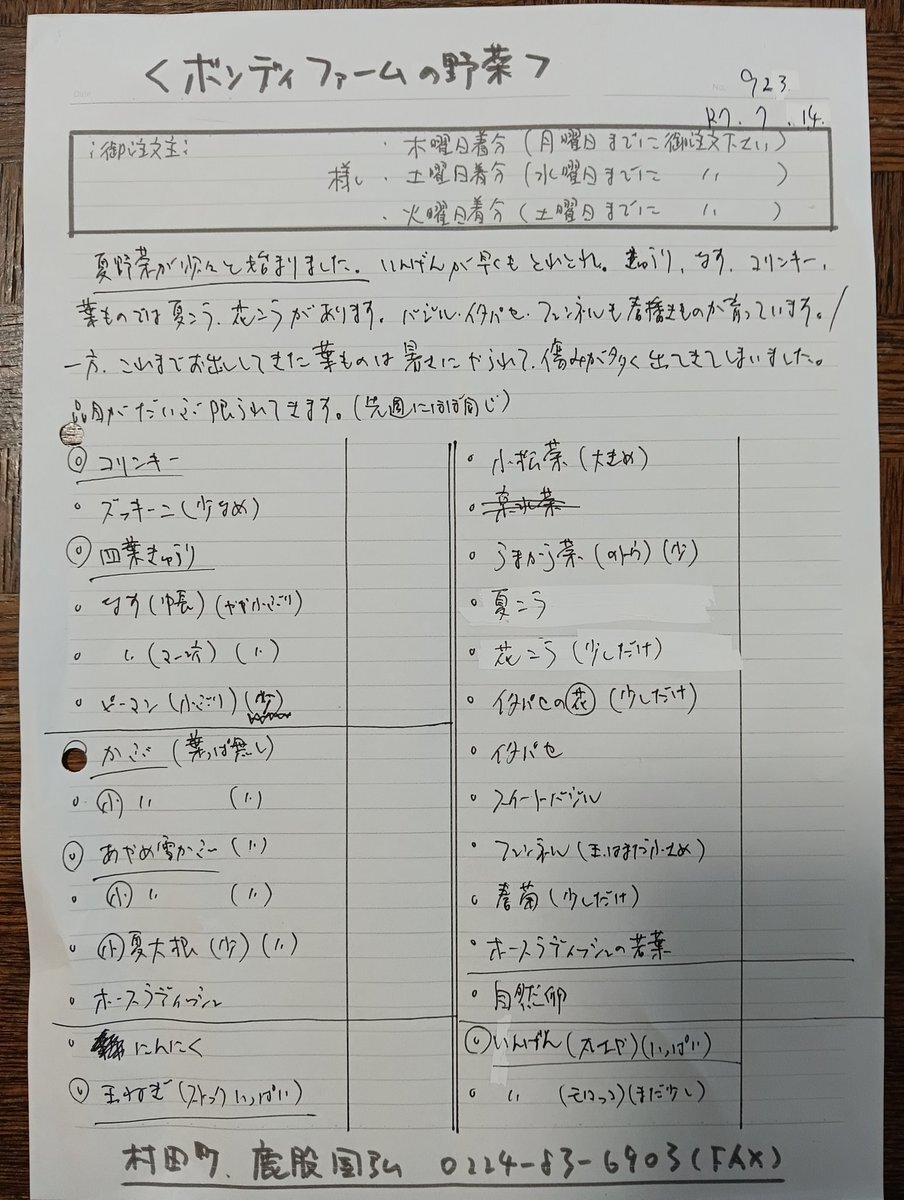 ＜ボンディファームの野菜＞
No. 923
R7.7.14.
:御注文主:
様
・木曜日着分(月曜日までに御注文下さい)
・土曜日着分(水曜日までに 〃 )
・火曜日着分(土曜日までに 〃 )
夏野菜が少々と始まりました。いんげんが早くもとれとれ。きゅうり、なす、コリンキー、
葉ものでは夏こう、花こうがあります。バジル・イタパセ・フェンネルも春播きものが育っています。/
一方、これまでお出ししてきた葉ものは暑さにやられて、傷みが多く出てきてしまいました。
品目がだいぶ限られてきます。(先週にほぼ同じ)
◎コリンキー
・ズッキーニ(少なめ)
◎四葉きゅうり
・なす(中長)(やや小ぶり)
・〃(マー坊)(〃)
・ピーマン(小ぶり)(少)
かぶ(葉っぱ無し)
・小 〃 (〃)
◎あやめ雪かぶ(〃)
・小 〃 (〃)
・小夏大根(少)(〃)
・ホースラディッシュ
・にんにく
◎玉ねぎ(ストックいっぱい)
・小松菜(大きめ)
・うまから菜(のトウ)(少)
・夏こう
・花こう(少しだけ)
・イタパセの花(少しだけ)
・イタパセ
・スイートバジル
・フェンネル(玉はまだ小さめ)
・春菊(少しだけ)
・ホースラディッシュの若葉
・自然卵
◎いんげん(丸さや)(いっぱい)
・〃(モロッコ)(まだ少し)
村田町、鹿股国弘 0224-83-6903(FAX)